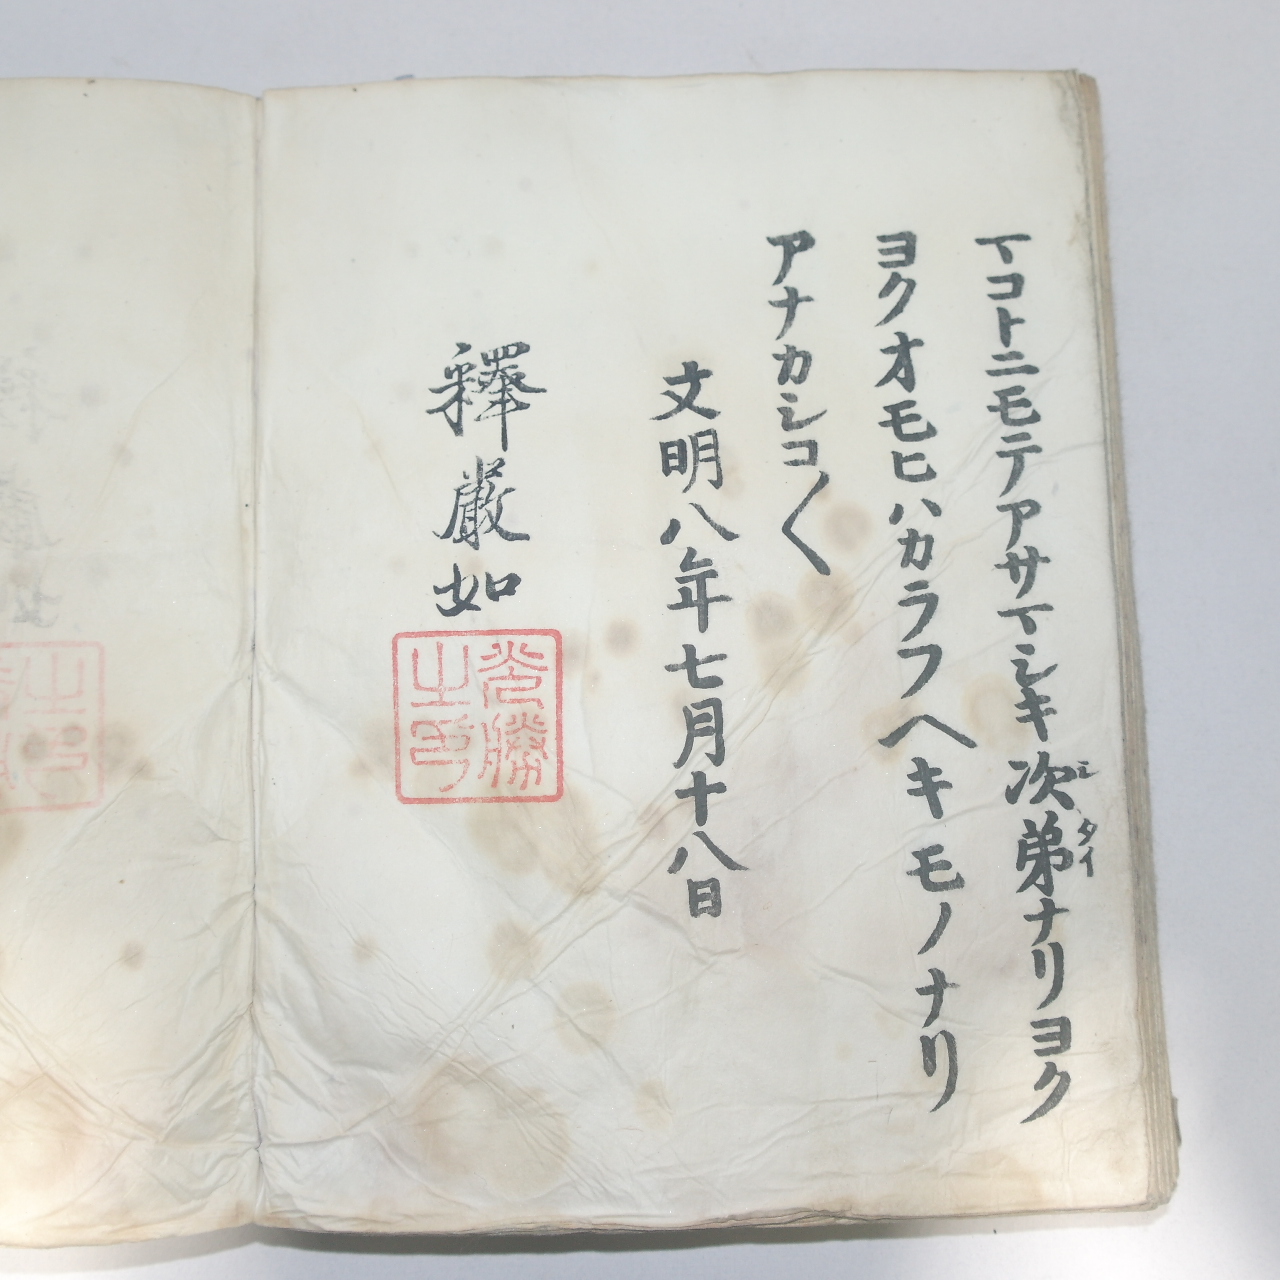 マコトニモテアサマシキ次第ナリヨク
シタイ
ヨクオモヒハカラフヘキモノナリ
アナカシコ〱
文明八年七月十八日
釋嚴如
光勝
之印